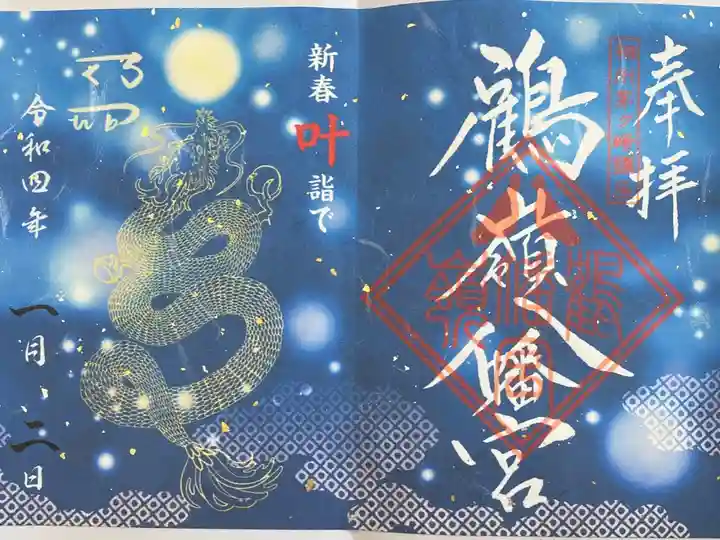 奉拝
鶴嶺八幡宮
新春叶詣で
令和四年
一月、二日